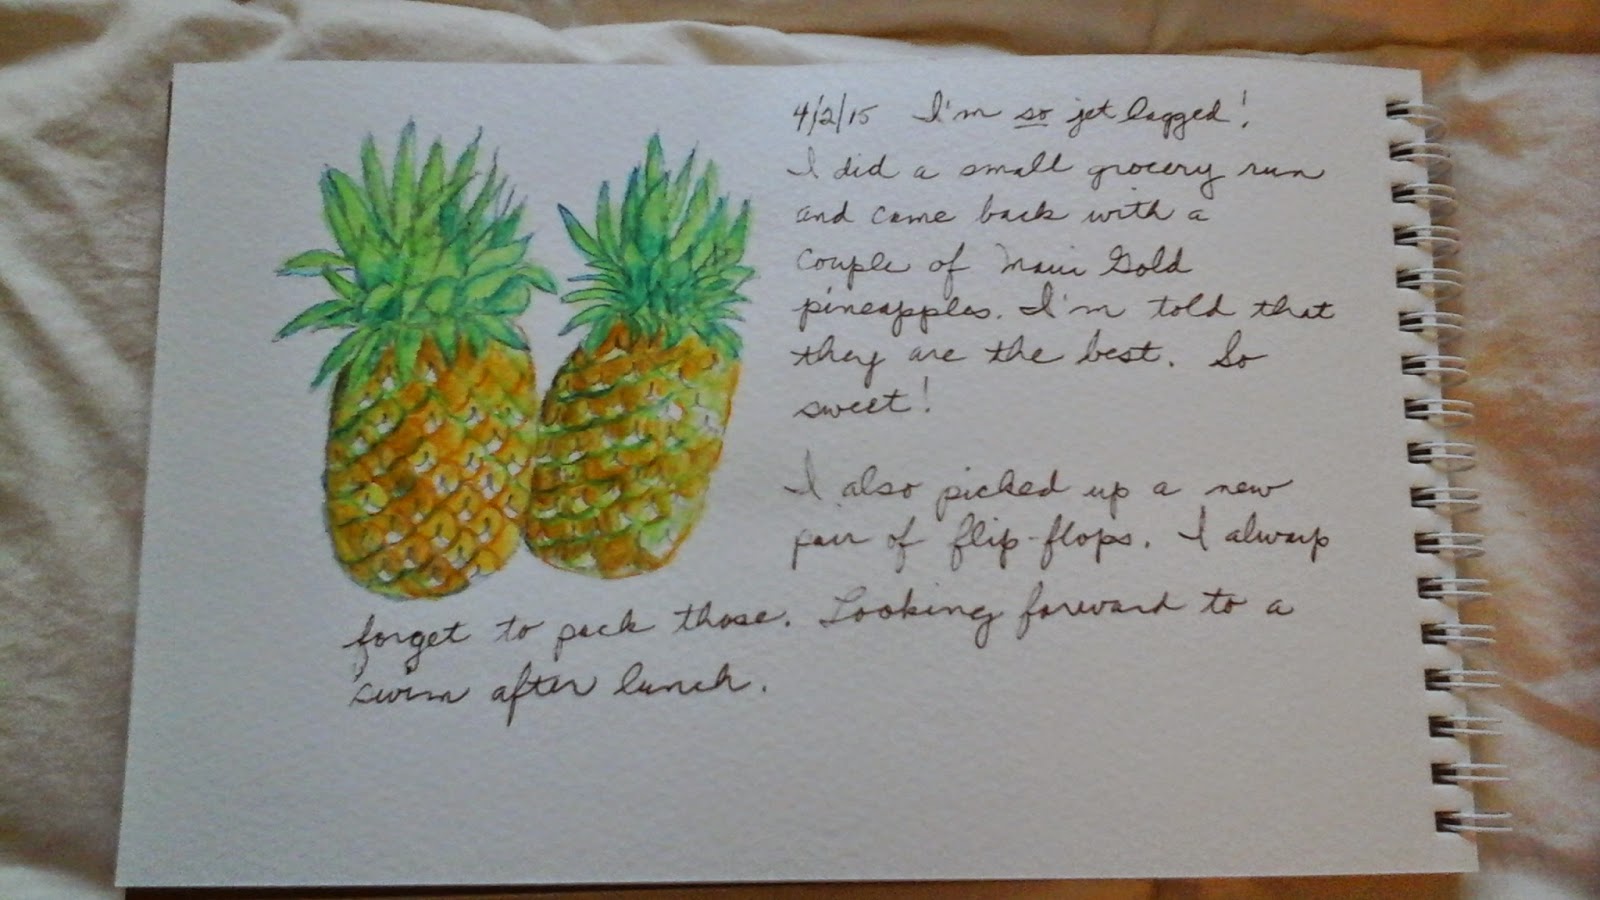 4/2/15 I'm so jet lagged!
I did a small grocery run
and came back with a
couple of Maui Gold
pineapples. I'm told that
they are the best. So
sweet!
I also picked up a new
pair of flip-flops. I always
forget to pack those. Looking forward to a
swim after lunch.